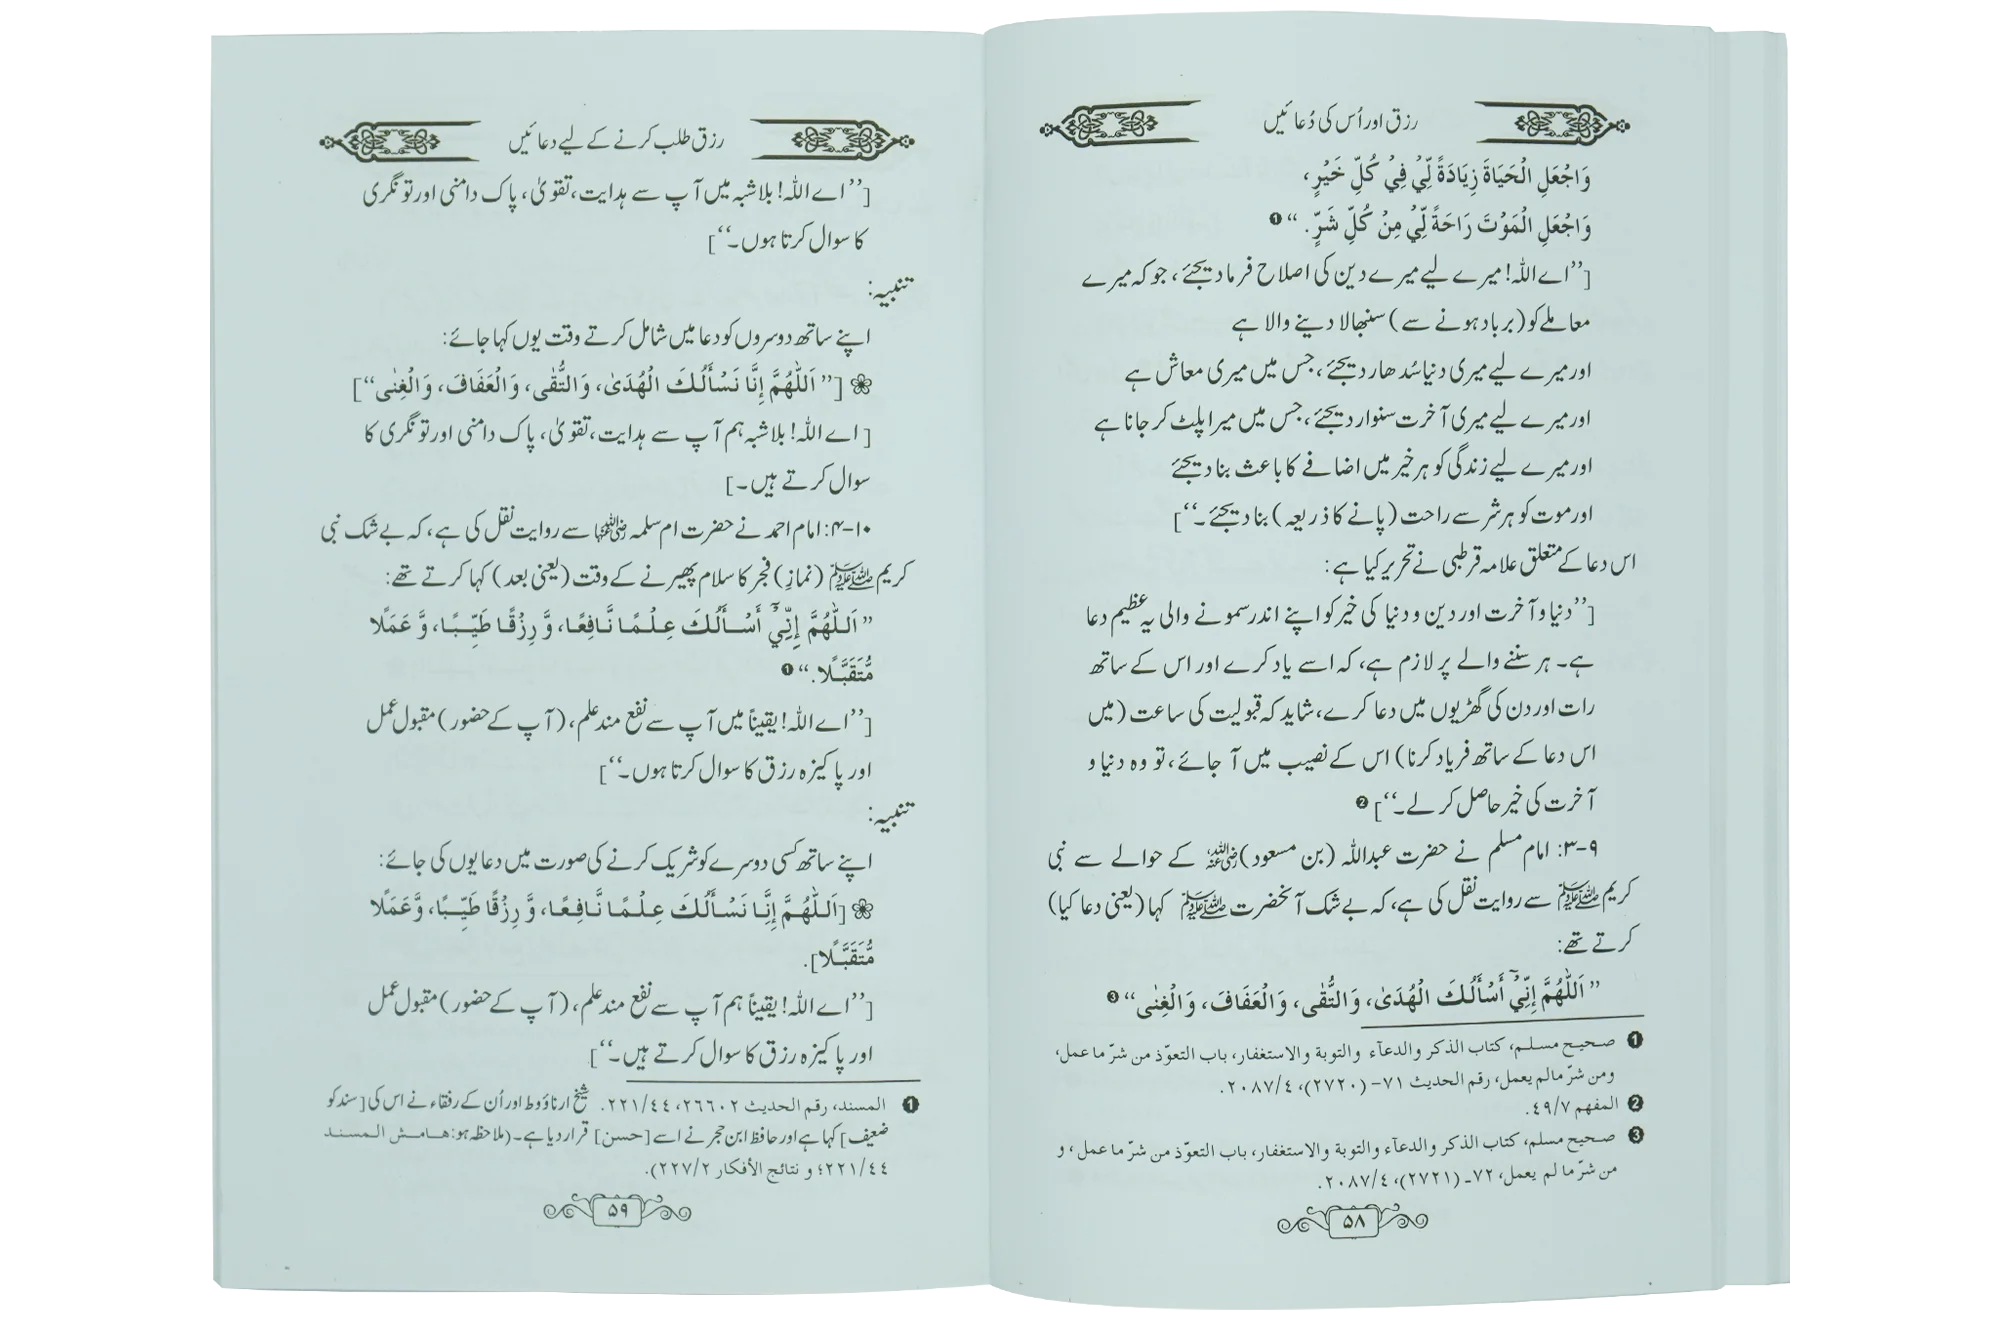 رزق اور اُس کی دُعائیں
وَاجْعَلِ الْحَيَاةَ زِيَادَةً لِّيْ فِيْ كُلِّ خَيْرٍ،
وَاجْعَلِ الْمَوْتَ رَاحَةً لِّيْ مِنْ كُلِّ شَرٍّ. “ ❶
[’’اے اللہ! میرے لیے میرے دین کی اصلاح فرما دیجئے، جو کہ میرے
معاملے کو (برباد ہونے سے) سنبھالا دینے والا ہے
اور میرے لیے میری دنیا سُدھار دیجئے، جس میں میری معاش ہے
اور میرے لیے میری آخرت سنوار دیجئے، جس میں میرا پلٹ کر جانا ہے
اور میرے لیے زندگی کو ہر خیر میں اضافے کا باعث بنا دیجئے
اور موت کو ہر شر سے راحت (پانے کا ذریعہ) بنا دیجئے۔‘‘]
اس دعا کے متعلق علامہ قرطبی نے تحریر کیا ہے:
[’’دنیا و آخرت اور دین و دنیا کی خیر کو اپنے اندر سمونے والی یہ عظیم دعا
ہے۔ ہر سننے والے پر لازم ہے، کہ اسے یاد کرے اور اس کے ساتھ
رات اور دن کی گھڑیوں میں دعا کرے، شاید کہ قبولیت کی ساعت (میں
اس دعا کے ساتھ فریاد کرنا) اس کے نصیب میں آ جائے، تو وہ دنیا و
آخرت کی خیر حاصل کر لے۔‘‘] ❷
۹-۳: امام مسلم نے حضرت عبداللہ (بن مسعود) رضی اللہ عنہ کے حوالے سے نبی
کریم ﷺ سے روایت نقل کی ہے، کہ بے شک آنحضرت ﷺ کہا (یعنی دعا کیا)
کرتے تھے:
” اَللّٰهُمَّ إِنِّيْٓ أَسْأَلُكَ الْهُدَىٰ، وَالتُّقٰى، وَالْعَفَافَ، وَالْغِنٰى “ ❸
❶ صحيح مسلم، كتاب الذكر والدعآء والتوبة والاستغفار، باب التعوّذ من شرّ ما عمل،
ومن شرّ مالم يعمل، رقم الحديث ٧١- (٢٧٢٠)، ٢٠٨٧/٤.
❷ المفهم ٤٩/٧.
❸ صحيح مسلم، كتاب الذكر والدعآء والتوبة والاستغفار، باب التعوّذ من شرّ ما عمل، و
من شرّ ما لم يعمل، ٧٢- (٢٧٢١)، ٢٠٨٧/٤.
۵۸
رزق طلب کرنے کے لیے دعائیں
[’’اے اللہ! بلاشبہ میں آپ سے ہدایت، تقویٰ، پاک دامنی اور تونگری
کا سوال کرتا ہوں۔‘‘]
تنبیہ:
اپنے ساتھ دوسروں کو دعا میں شامل کرتے وقت یوں کہا جائے:
❀ [” اَللّٰهُمَّ إِنَّا نَسْأَلُكَ الْهُدَىٰ، وَالتُّقٰى، وَالْعَفَافَ، وَالْغِنٰى“]
[اے اللہ! بلاشبہ ہم آپ سے ہدایت، تقویٰ، پاک دامنی اور تونگری کا
سوال کرتے ہیں۔]
۱۰-۴: امام احمد نے حضرت ام سلمہ رضی اللہ عنہا سے روایت نقل کی ہے، کہ بے شک نبی
کریم ﷺ (نمازِ) فجر کا سلام پھیرنے کے وقت (یعنی بعد) کہا کرتے تھے:
” اَللّٰهُمَّ إِنِّيْٓ أَسْأَلُكَ عِلْمًا نَّافِعًا، وَّ رِزْقًا طَيِّبًا، وَّ عَمَلًا
مُّتَقَبَّلًا. “ ❶
[’’اے اللہ! یقیناً میں آپ سے نفع مند علم، (آپ کے حضور) مقبول عمل
اور پاکیزہ رزق کا سوال کرتا ہوں۔‘‘]
تنبیہ:
اپنے ساتھ کسی دوسرے کو شریک کرنے کی صورت میں دعا یوں کی جائے:
❀ [اَللّٰهُمَّ إِنَّا نَسْأَلُكَ عِلْمًا نَّافِعًا، وَّ رِزْقًا طَيِّبًا، وَّعَمَلًا
مُّتَقَبَّلًا].
[’’اے اللہ! یقیناً ہم آپ سے نفع مند علم، (آپ کے حضور) مقبول عمل
اور پاکیزہ رزق کا سوال کرتے ہیں۔‘‘]
❶ المسند، رقم الحديث ٢٦٦٠٢، ٢٢١/٤٤. شیخ ارناؤوط اور اُن کے رفقاء نے اس کی [سند کو
ضعیف] کہا ہے اور حافظ ابن حجر نے اسے [حسن] قرار دیا ہے۔ (ملاحظہ ہو: هامش المسند
٢٢١/٤٤؛ و نتائج الأفكار ٢٢٧/٢).
۵۹